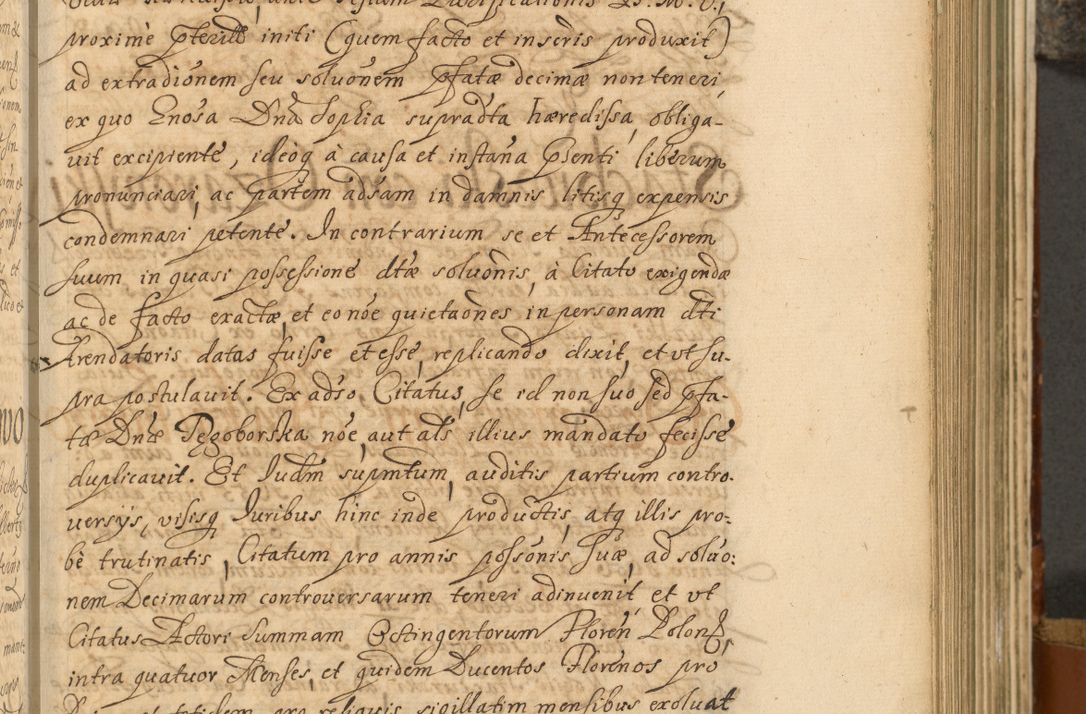 proximè pteritt initi (quem facto et inseris produxit)
ad extradionem seu soluonem pfatæ decimæ non teneri,
ex quo Gnosa Dnã Sophia supradta hæredissa, obliga-
uit excipientẽ, ideoq à causa et instãna pñsenti liberum
pronunciari, ac partem adsam in damnis litisq expensis
condemnari petentẽ. In contrarium se et Antecessorem
suum in quasi possessione dtæ soluonis, à Citato exigendæ
ac de facto exactæ, et eo nõe quietaones in personam dti
Arendatoris datas fuisse et esse, replicando dixit, et vt su-
pra postulauit. Ex adso Citatus, se id non suo sed pfa-
tæ Dnæ Tęgoborska nõe, aut als illius mandato fecisse
duplicauit. Et Iudm supmtum, auditis partium contro-
uersijs, visisq Iuribus hinc inde productis, atq illis pro-
bè trutinatis, Citatum pro annis possonis suæ, ad soluo-
nem Decimarum controuersarum teneri adinuenit et vt
Citatus Actori Summam Octingentorum Floren Polon
intra quatuor Menses, et quidem Ducentos Florenos pro
et totidem pro reliquis sigillatim mensibus exoluat